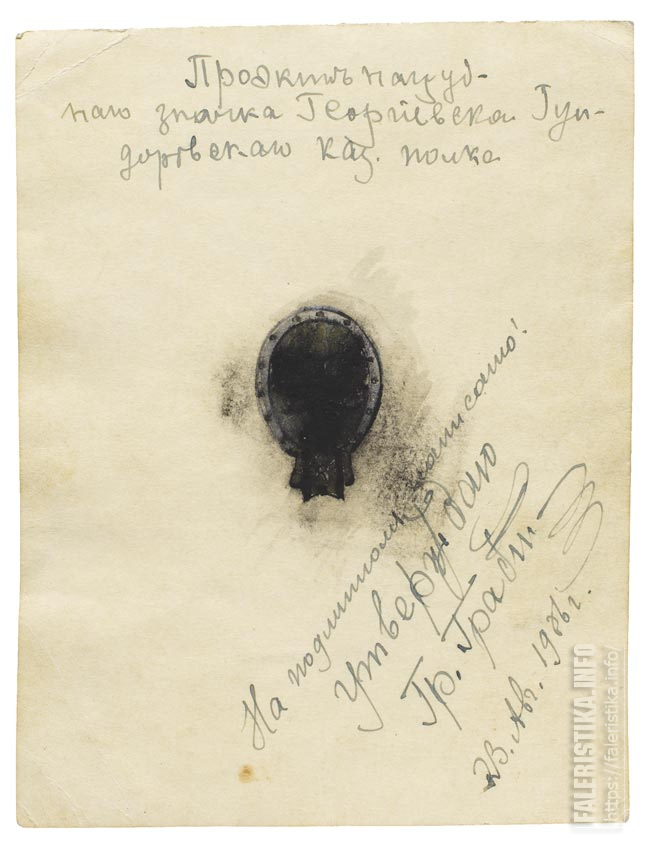 Проэктъ нагруд-
наго значка Георгіевска. Гун-
доровскаго каз. полка
На подлинномъ написано:
Утверждаю
Гр. Граббе
23. Авг. 1926 г.
FALERISTIKA.INFO
https://faleristika.info/